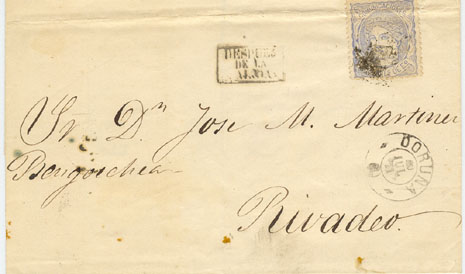 DESPUES
DE LA
Sr. Dn Jose M. Martinez
Bengoechea
CORUÑA
JUL
Rivadeo.